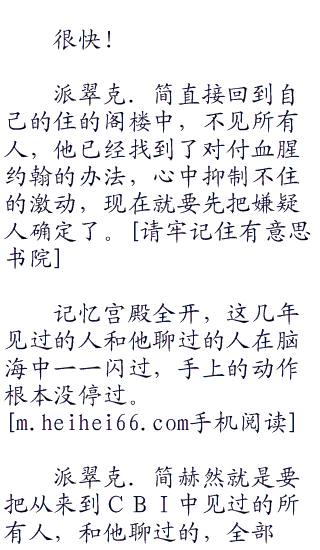 很快！
派翠克．简直接回到自
己的住的阁楼中，不见所有
人，他已经找到了对付血腥
约翰的办法，心中抑制不住
的激动，现在就要先把嫌疑
人确定了。[请牢记住有意思
书院]
记忆宫殿全开，这几年
见过的人和他聊过的人在脑
海中一一闪过，手上的动作
根本没停过。
[m.heihei66.com手机阅读]
派翠克．简赫然就是要
把从来到ＣＢＩ中见过的所
有人，和他聊过的，全部